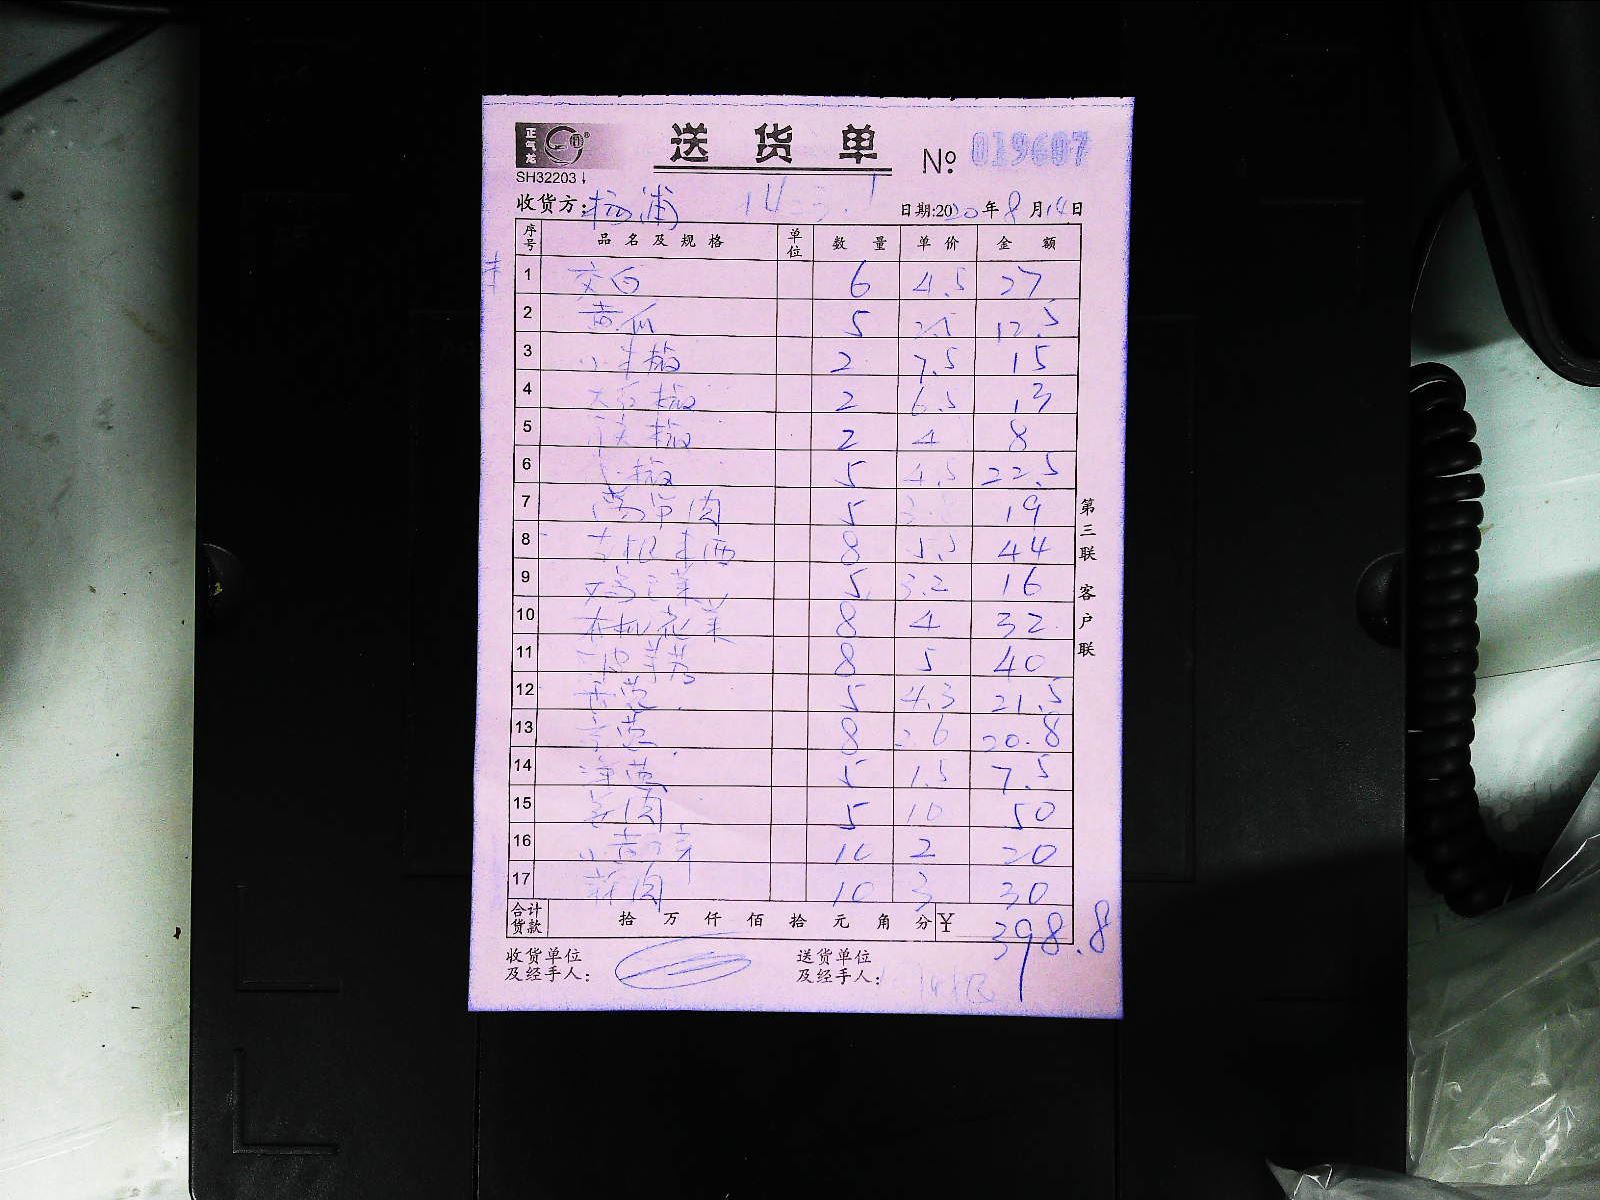 正气龙
SH32203
送货单 No. 019607
收货方: 杨浦 1433.1 日期:2020年8月14日
序号 品名及规格 单位 数量 单价 金额
1 交白 6 4.5 27
2 黄瓜 5 2.5 12.5
3 小米椒 2 7.5 15
4 大红椒 2 6.5 13
5 椒 2 4 8
6 椒 5 4.5 22.5
7 莴笋肉 5 3.8 19
8 有机 西 8 5.5 44
9 菜 5 3.2 16
10 有机花菜 8 4 32
11 8 5 40
12 香葱 5 4.3 21.5
13 8 2.6 20.8
14 洋葱 5 1.5 7.5
15 姜肉 5 10 50
16 小黄 10 2 20
17 肉 10 3 30
合计货款 拾 万 仟 佰 拾 元 角 分 ¥ 398.8
收货单位及经手人:
送货单位及经手人:
第三联 客户联